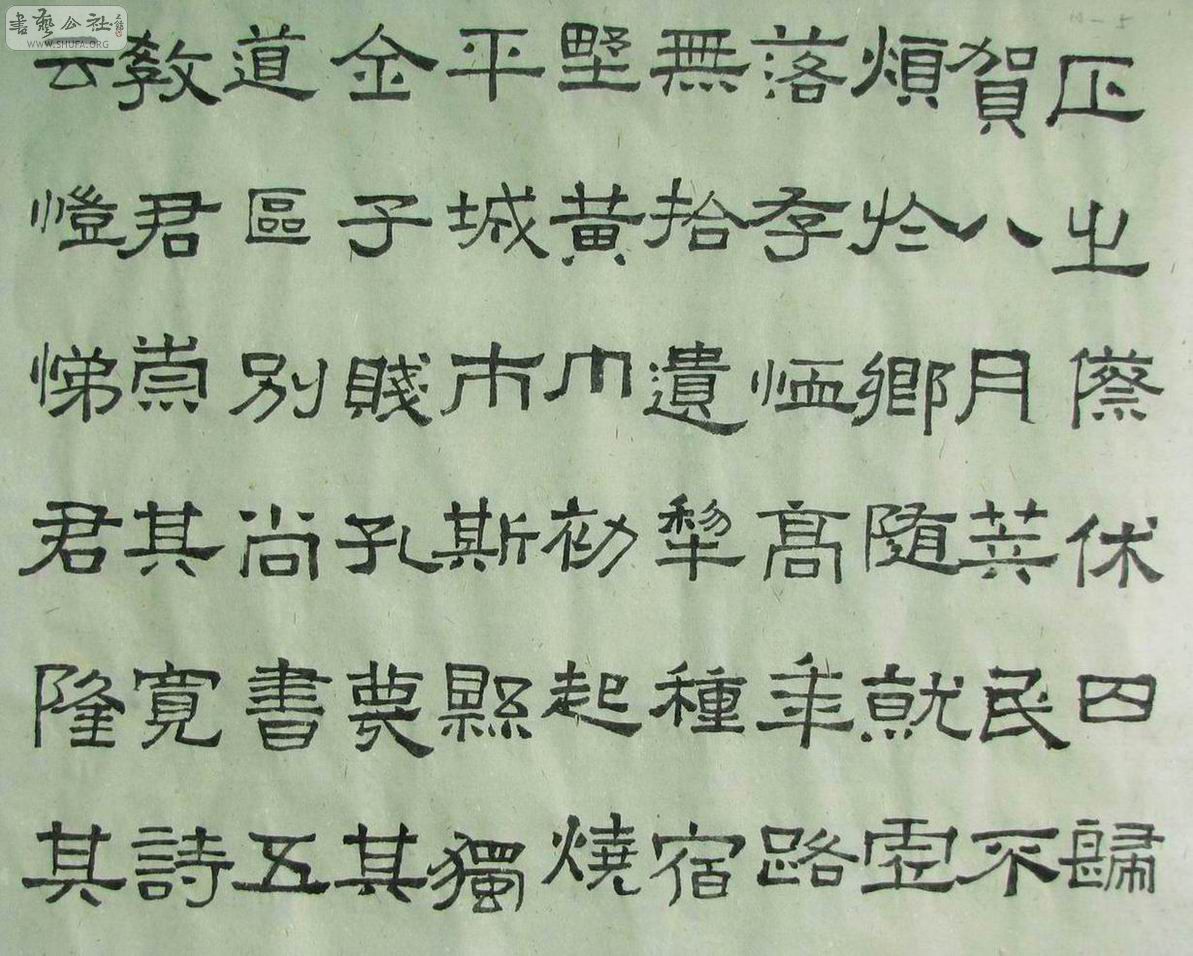 正之傺休囚歸
賀八月筭民不
煩於鄉隨就虛
落存恤高年路
無拾遺犁種宿
墅黃巾初起燒
平城市斯縣獨
全子賤孔蔑其
道區別尚書五
教君崇其寬詩
云愷悌君隆其
書藝公社
WWW.SHUFA.ORG